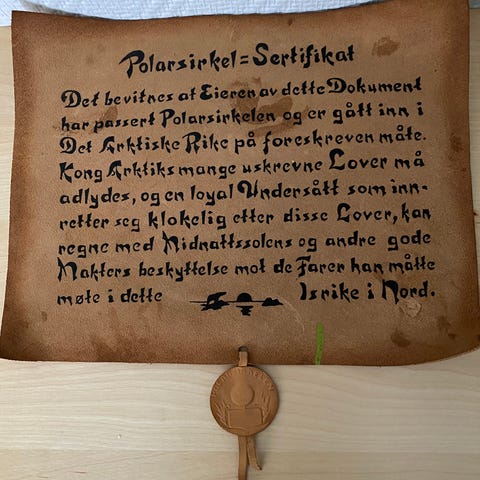 Polarsirkel=Sertifikat
Det bevitnes at Eieren av dette Dokument
har passert Polarsirkelen og er gått inn i
Det Arktiske Rike på foreskreven måte.
Kong Arktiks mange uskrevne Lover må
adlydes, og en loyal Undersått som inn-
retter seg klokelig etter disse Lover, kan
regne med Midnattssolens og andre gode
Makters beskyttelse mot de Farer han måtte
møte i dette Isrike i Nord.